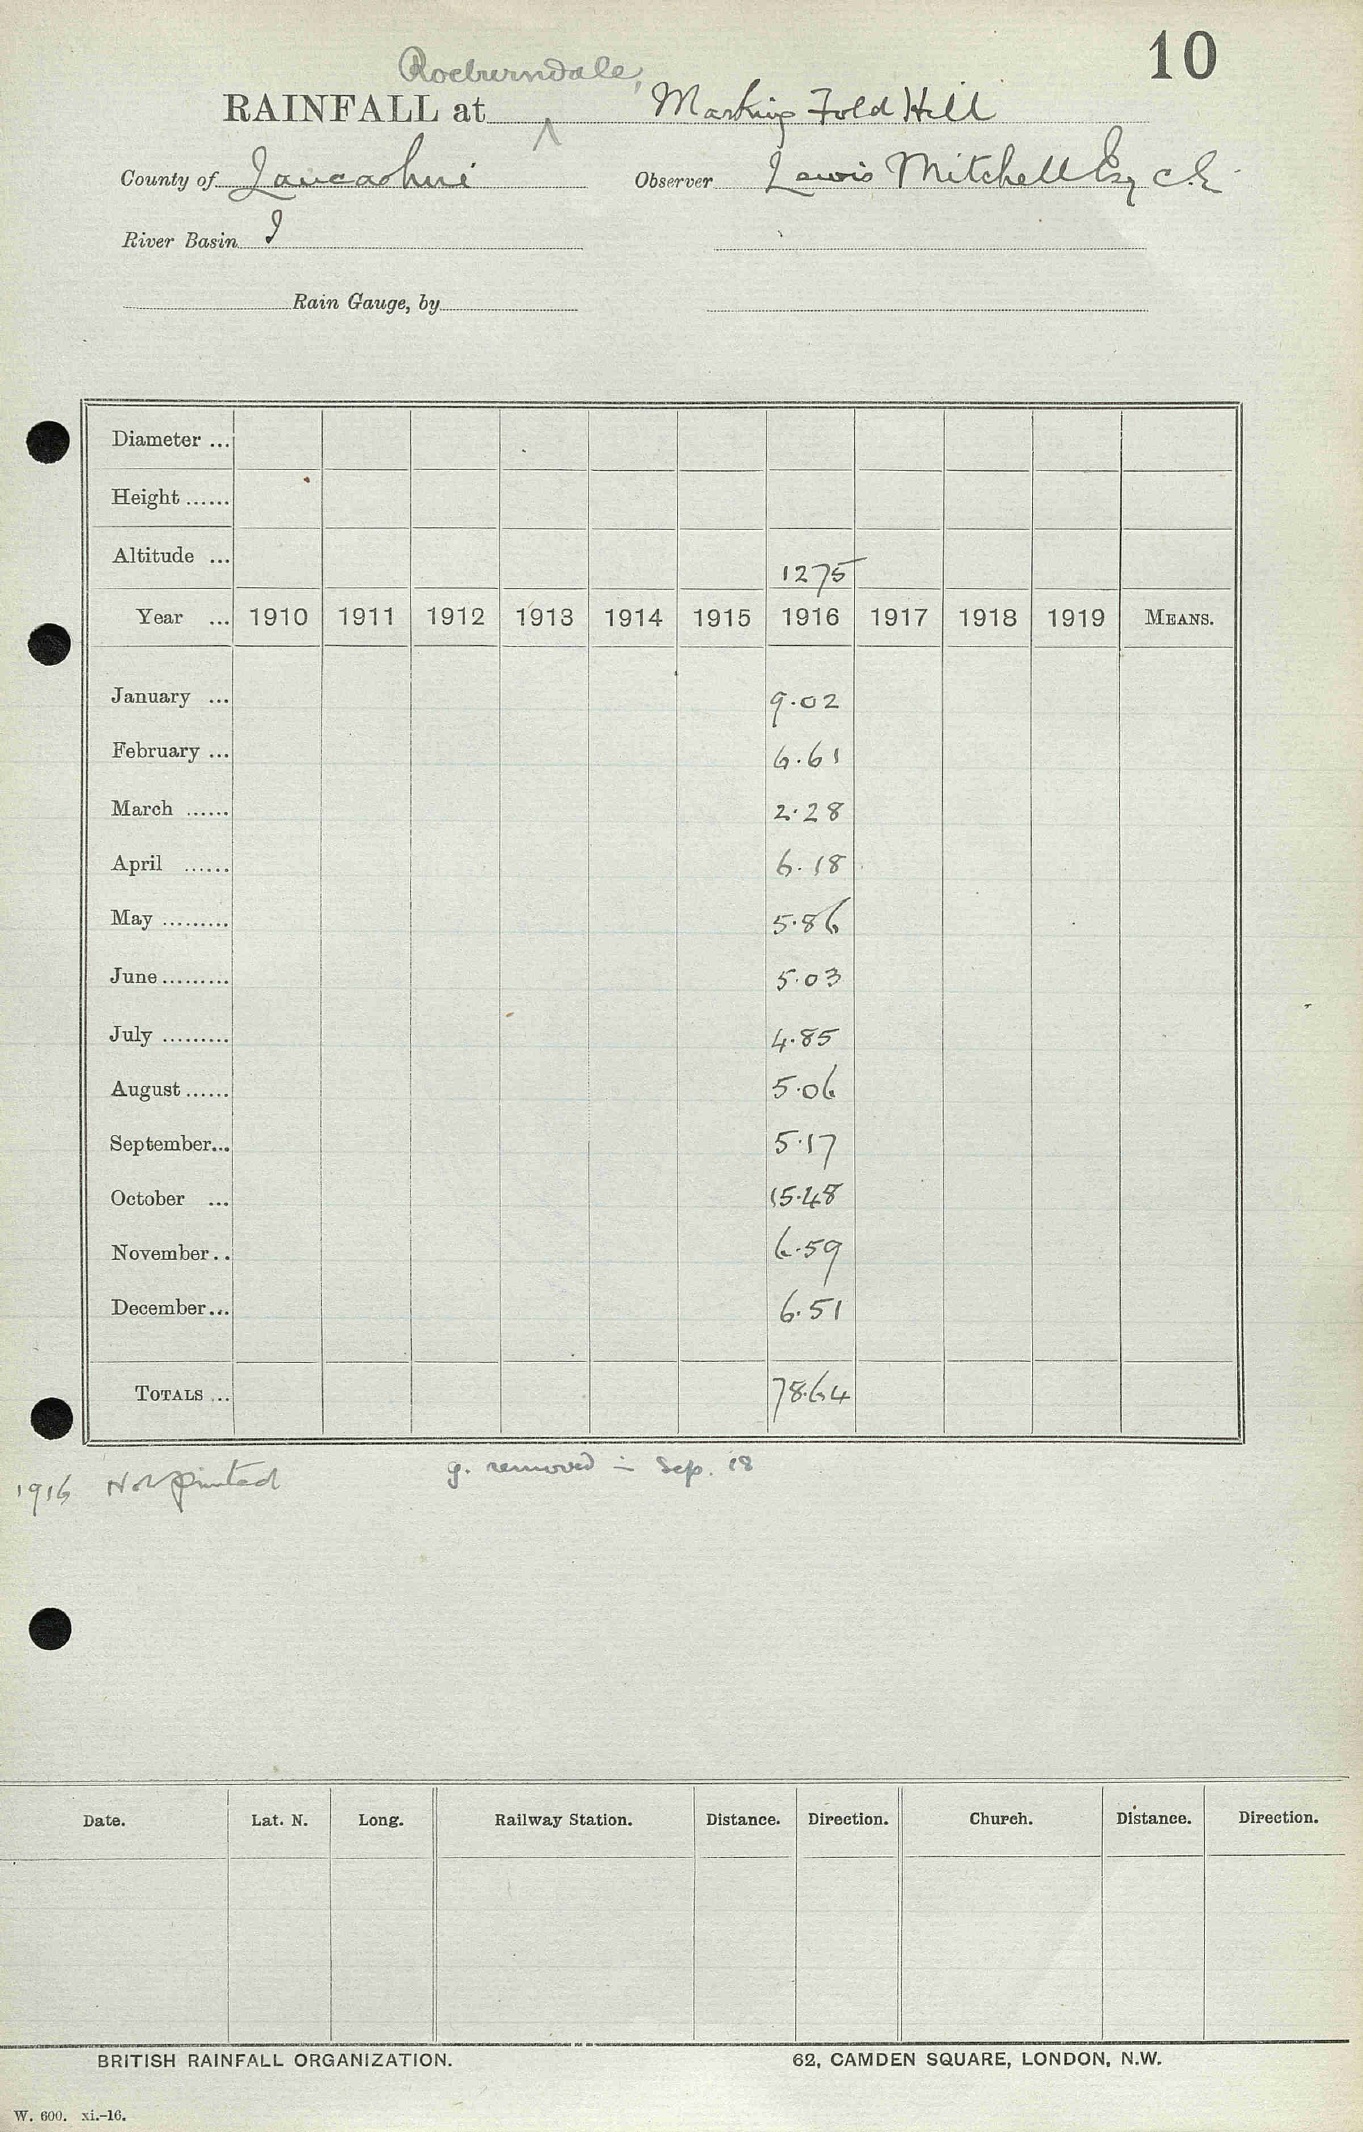 10
Roeburndale,
RAINFALL at ^ Marking Fold Hill
County of Lancashire Observer Lewis Mitchell Esq C.E.
River Basin I
Rain Gauge, by
Diameter ...
Height ......
Altitude ... 1275
Year ... 1910 1911 1912 1913 1914 1915 1916 1917 1918 1919 MEANS.
January ... 9.02
February ... 6.61
March ...... 2.28
April ...... 6.18
May ......... 5.86
June ......... 5.03
July ......... 4.85
August ...... 5.06
September... 5.17
October ... 15.48
November .. 6.59
December ... 6.51
TOTALS ... 78.64
g. removed – Sep. 18
1916 Not printed
Date. Lat. N. Long. Railway Station. Distance. Direction. Church. Distance. Direction.
BRITISH RAINFALL ORGANIZATION. 62, CAMDEN SQUARE, LONDON, N.W.
W. 600. xi.-16.